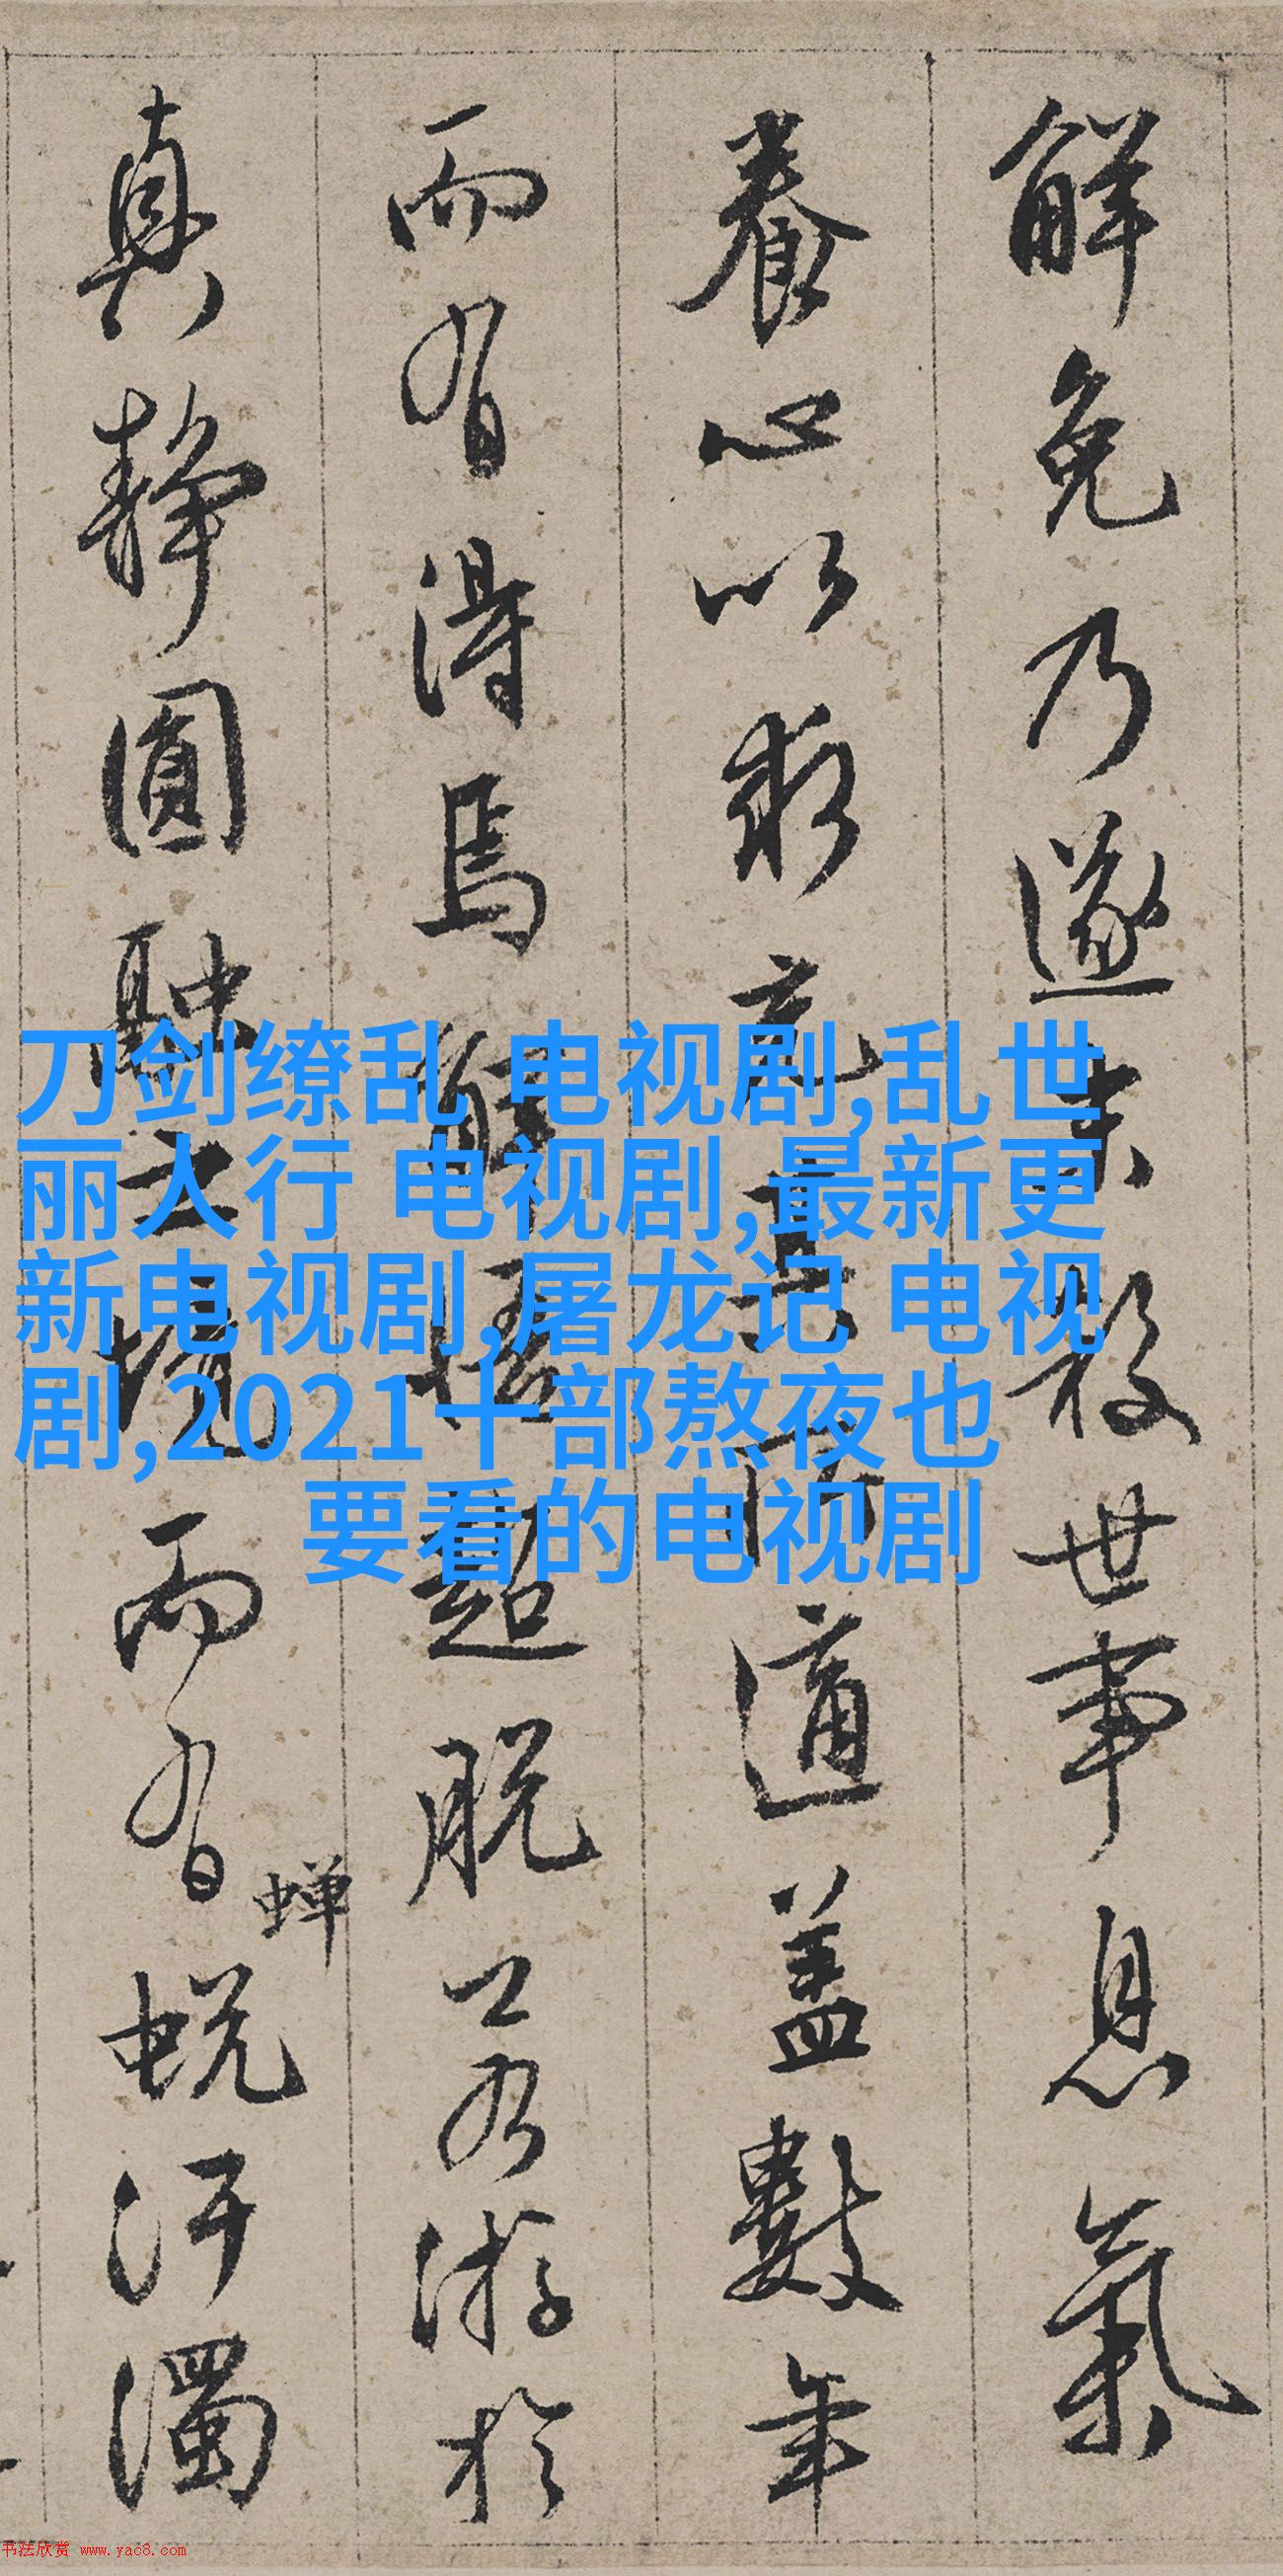 解免乃遂
世事息氣
養心以求
適盖數年
而有得焉解悟超脱
若游於
真靜圓融之境而有
蝉
蜕汙濁
刀剑缭乱 电视剧,乱世
丽人行 电视剧,最新更
新电视剧,屠龙记 电视
剧,2021十部熬夜也
要看的电视剧
书法欣赏 www.yac8.com